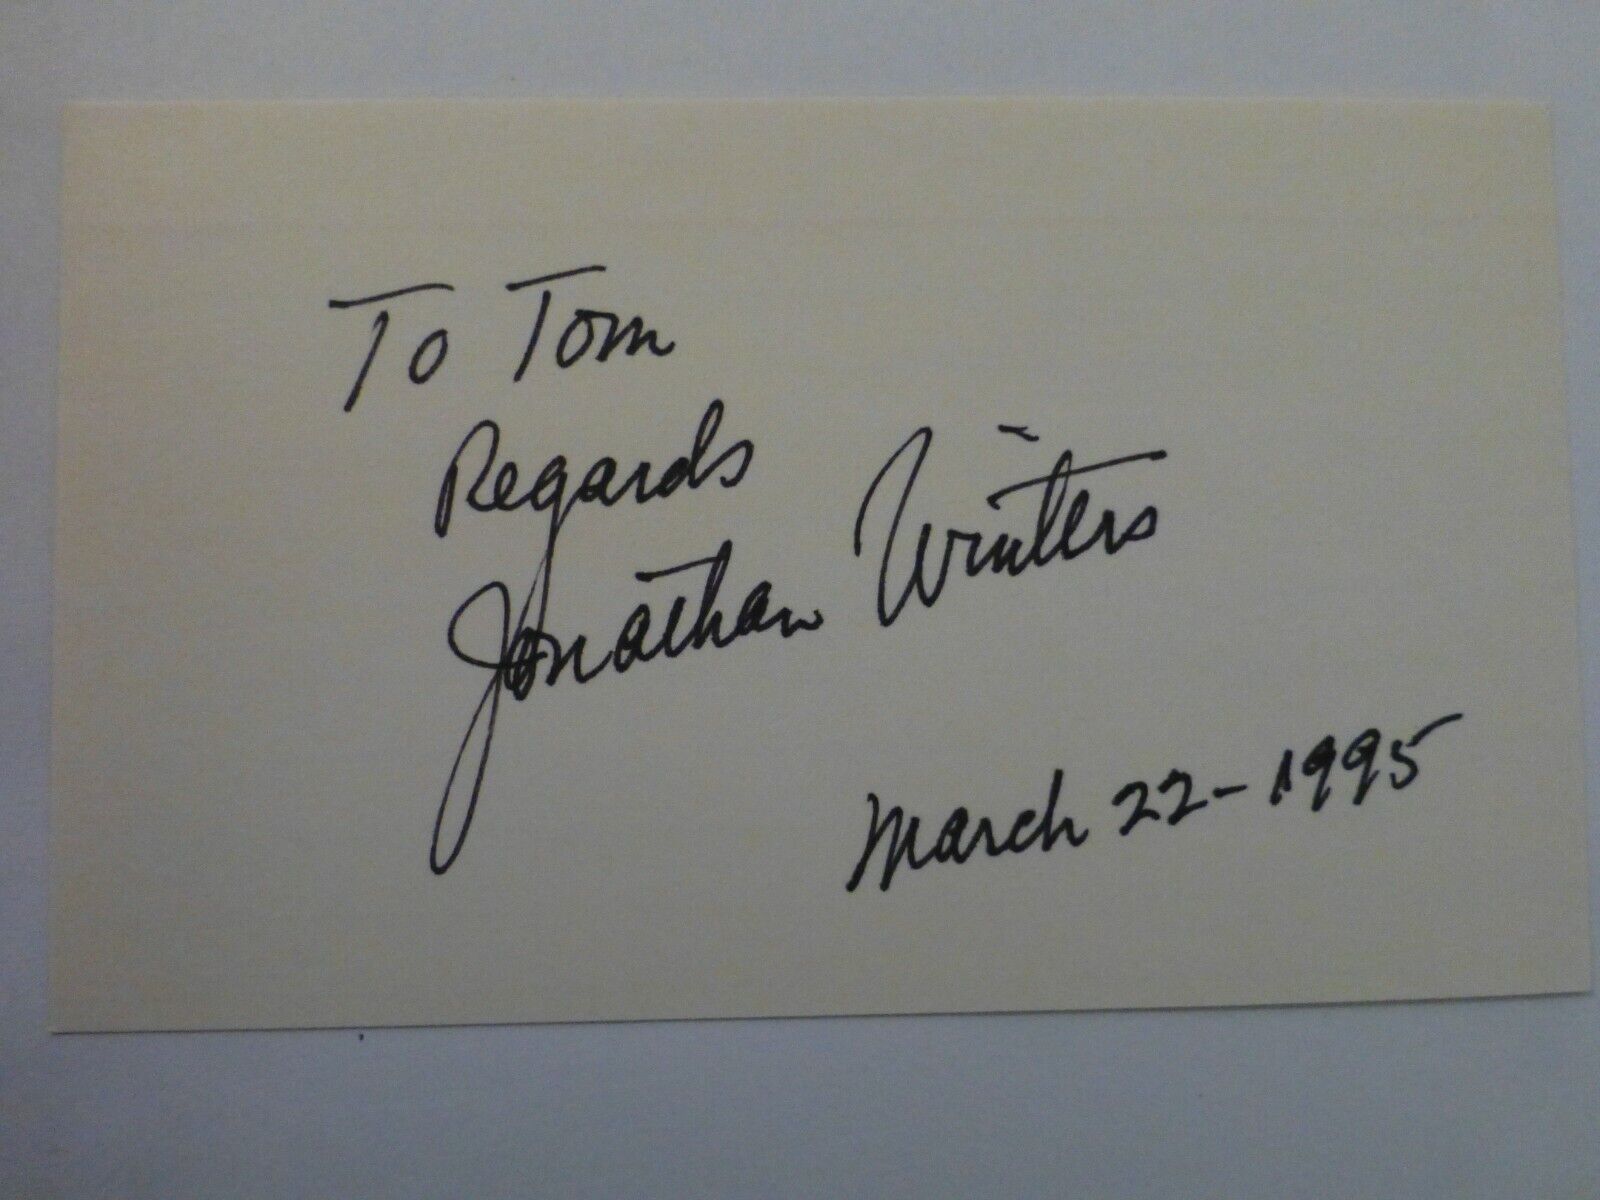 To Tom
Regards
Jonathan Winters
March 22-1995